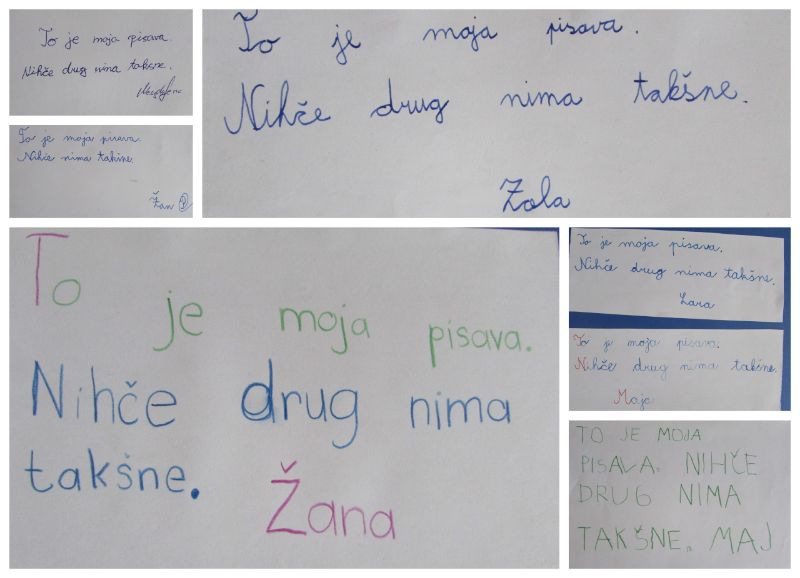 To je moja pisava.
Nihče drug nima takšne.
To je moja pisava.
Nihče nima takšne.
Žan
To je moja pisava.
Nihče drug nima takšne.
Zola
To je moja pisava.
Nihče drug nima
takšne.
Žana
To je moja pisava.
Nihče drug nima takšne.
Lara
To je moja pisava.
Nihče drug nima takšne.
Maja
TO JE MOJA
PISAVA. NIHČE
DRUG NIMA
TAKŠNE. MAJ